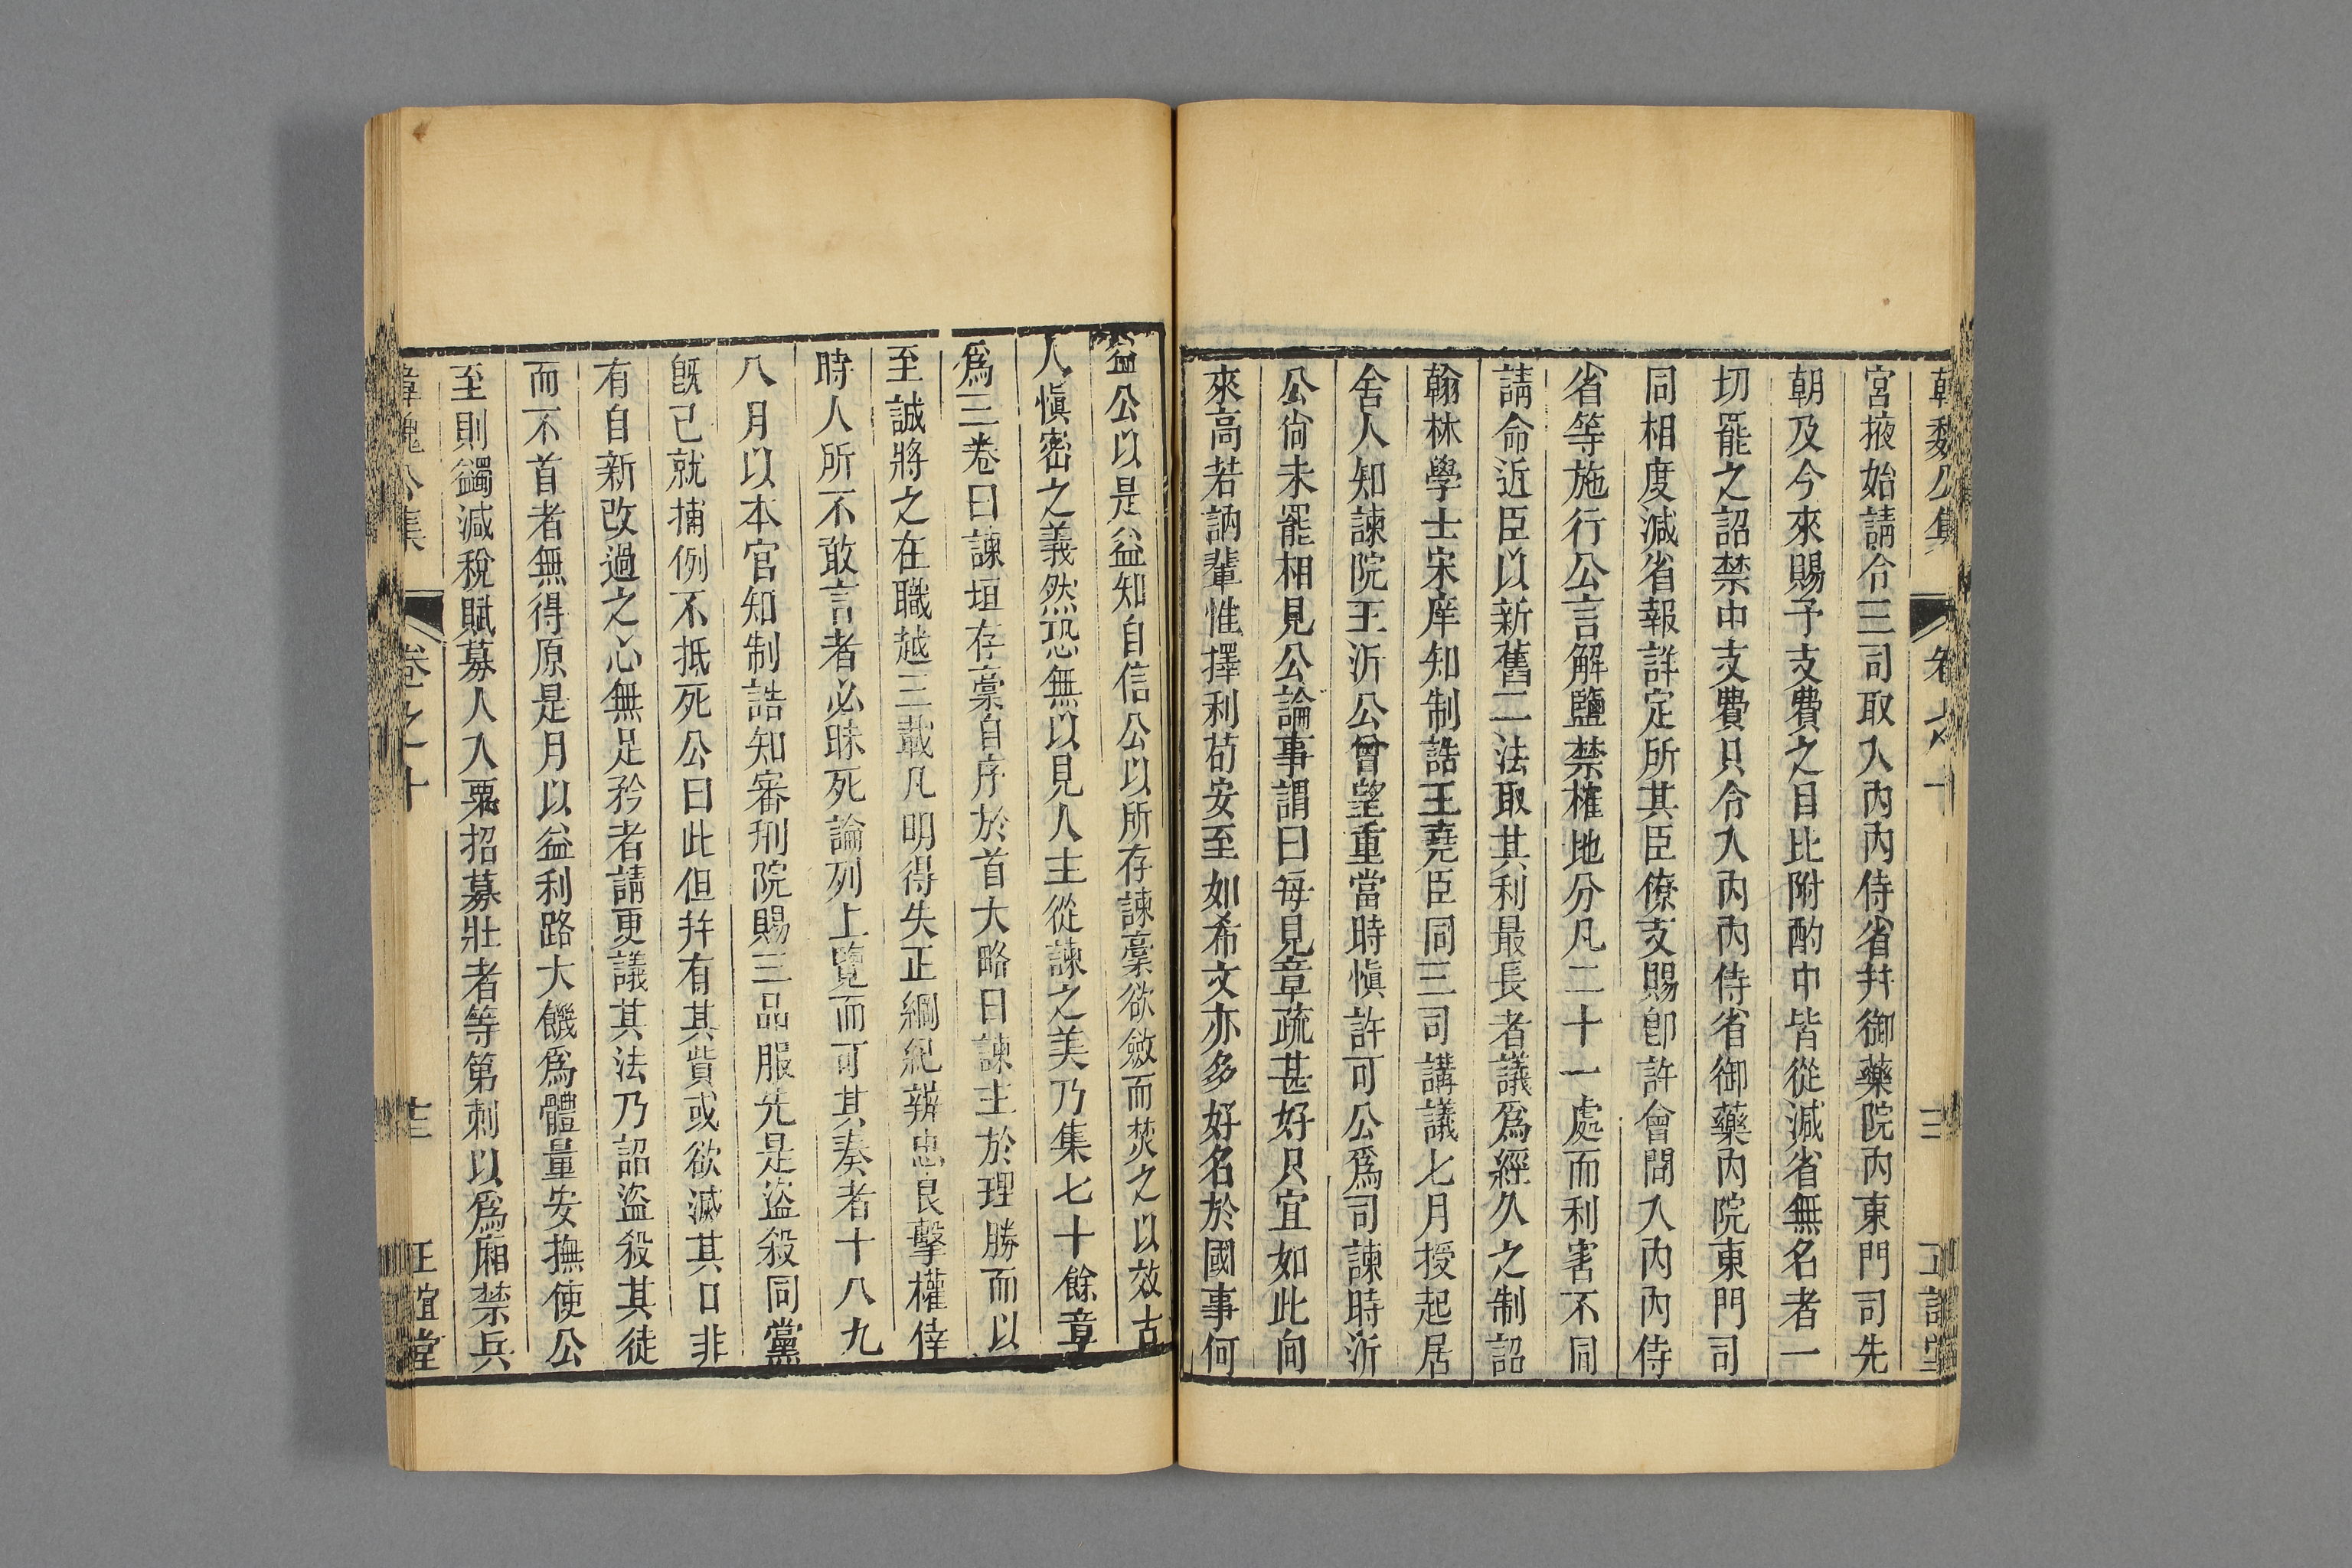 韓魏公集 卷之十 三 正誼堂
宮掖始請令三司取入內內侍省幷御藥院內東門司先
朝及今來賜予支費之目比附酌中皆從減省無名者一
切罷之詔禁中支費只令入內內侍省御藥內院東門司
同相度減省報詳定所其臣僚支賜卽許會問入內內侍
省等施行公言解鹽禁榷地分凡二十一處而利害不同
請命近臣以新舊二法取其利最長者議爲經久之制詔
翰林學士宋庠知制誥王堯臣同三司講議七月授起居
舍人知諫院王沂公曾望重當時愼許可公爲司諫時沂
公尙未罷相見公論事謂曰每見章疏甚好只宜如此向
來高若訥輩惟擇利苟安至如希文亦多好名於國事何
益公以是益知自信公以所存諫稾欲斂而焚之以效古
人愼密之義然恐無以見人主從諫之美乃集七十餘章
爲三卷曰諫垣存稾自序於首大略曰諫主於理勝而以
至誠將之在職越三載凡明得失正綱紀辨忠良擊權倖
時人所不敢言者必昧死論列上覽而可其奏者十八九
八月以本官知制誥知審刑院賜三品服先是盜殺同黨
旣已就捕例不抵死公曰此但幷有其貲或欲滅其口非
有自新改過之心無足矜者請更議其法乃詔盜殺其徒
而不首者無得原是月以益利路大饑爲體量安撫使公
至則蠲減稅賦募人入粟招募壯者等第刺以爲廂禁兵
韓魏公集 卷之十 三 正誼堂